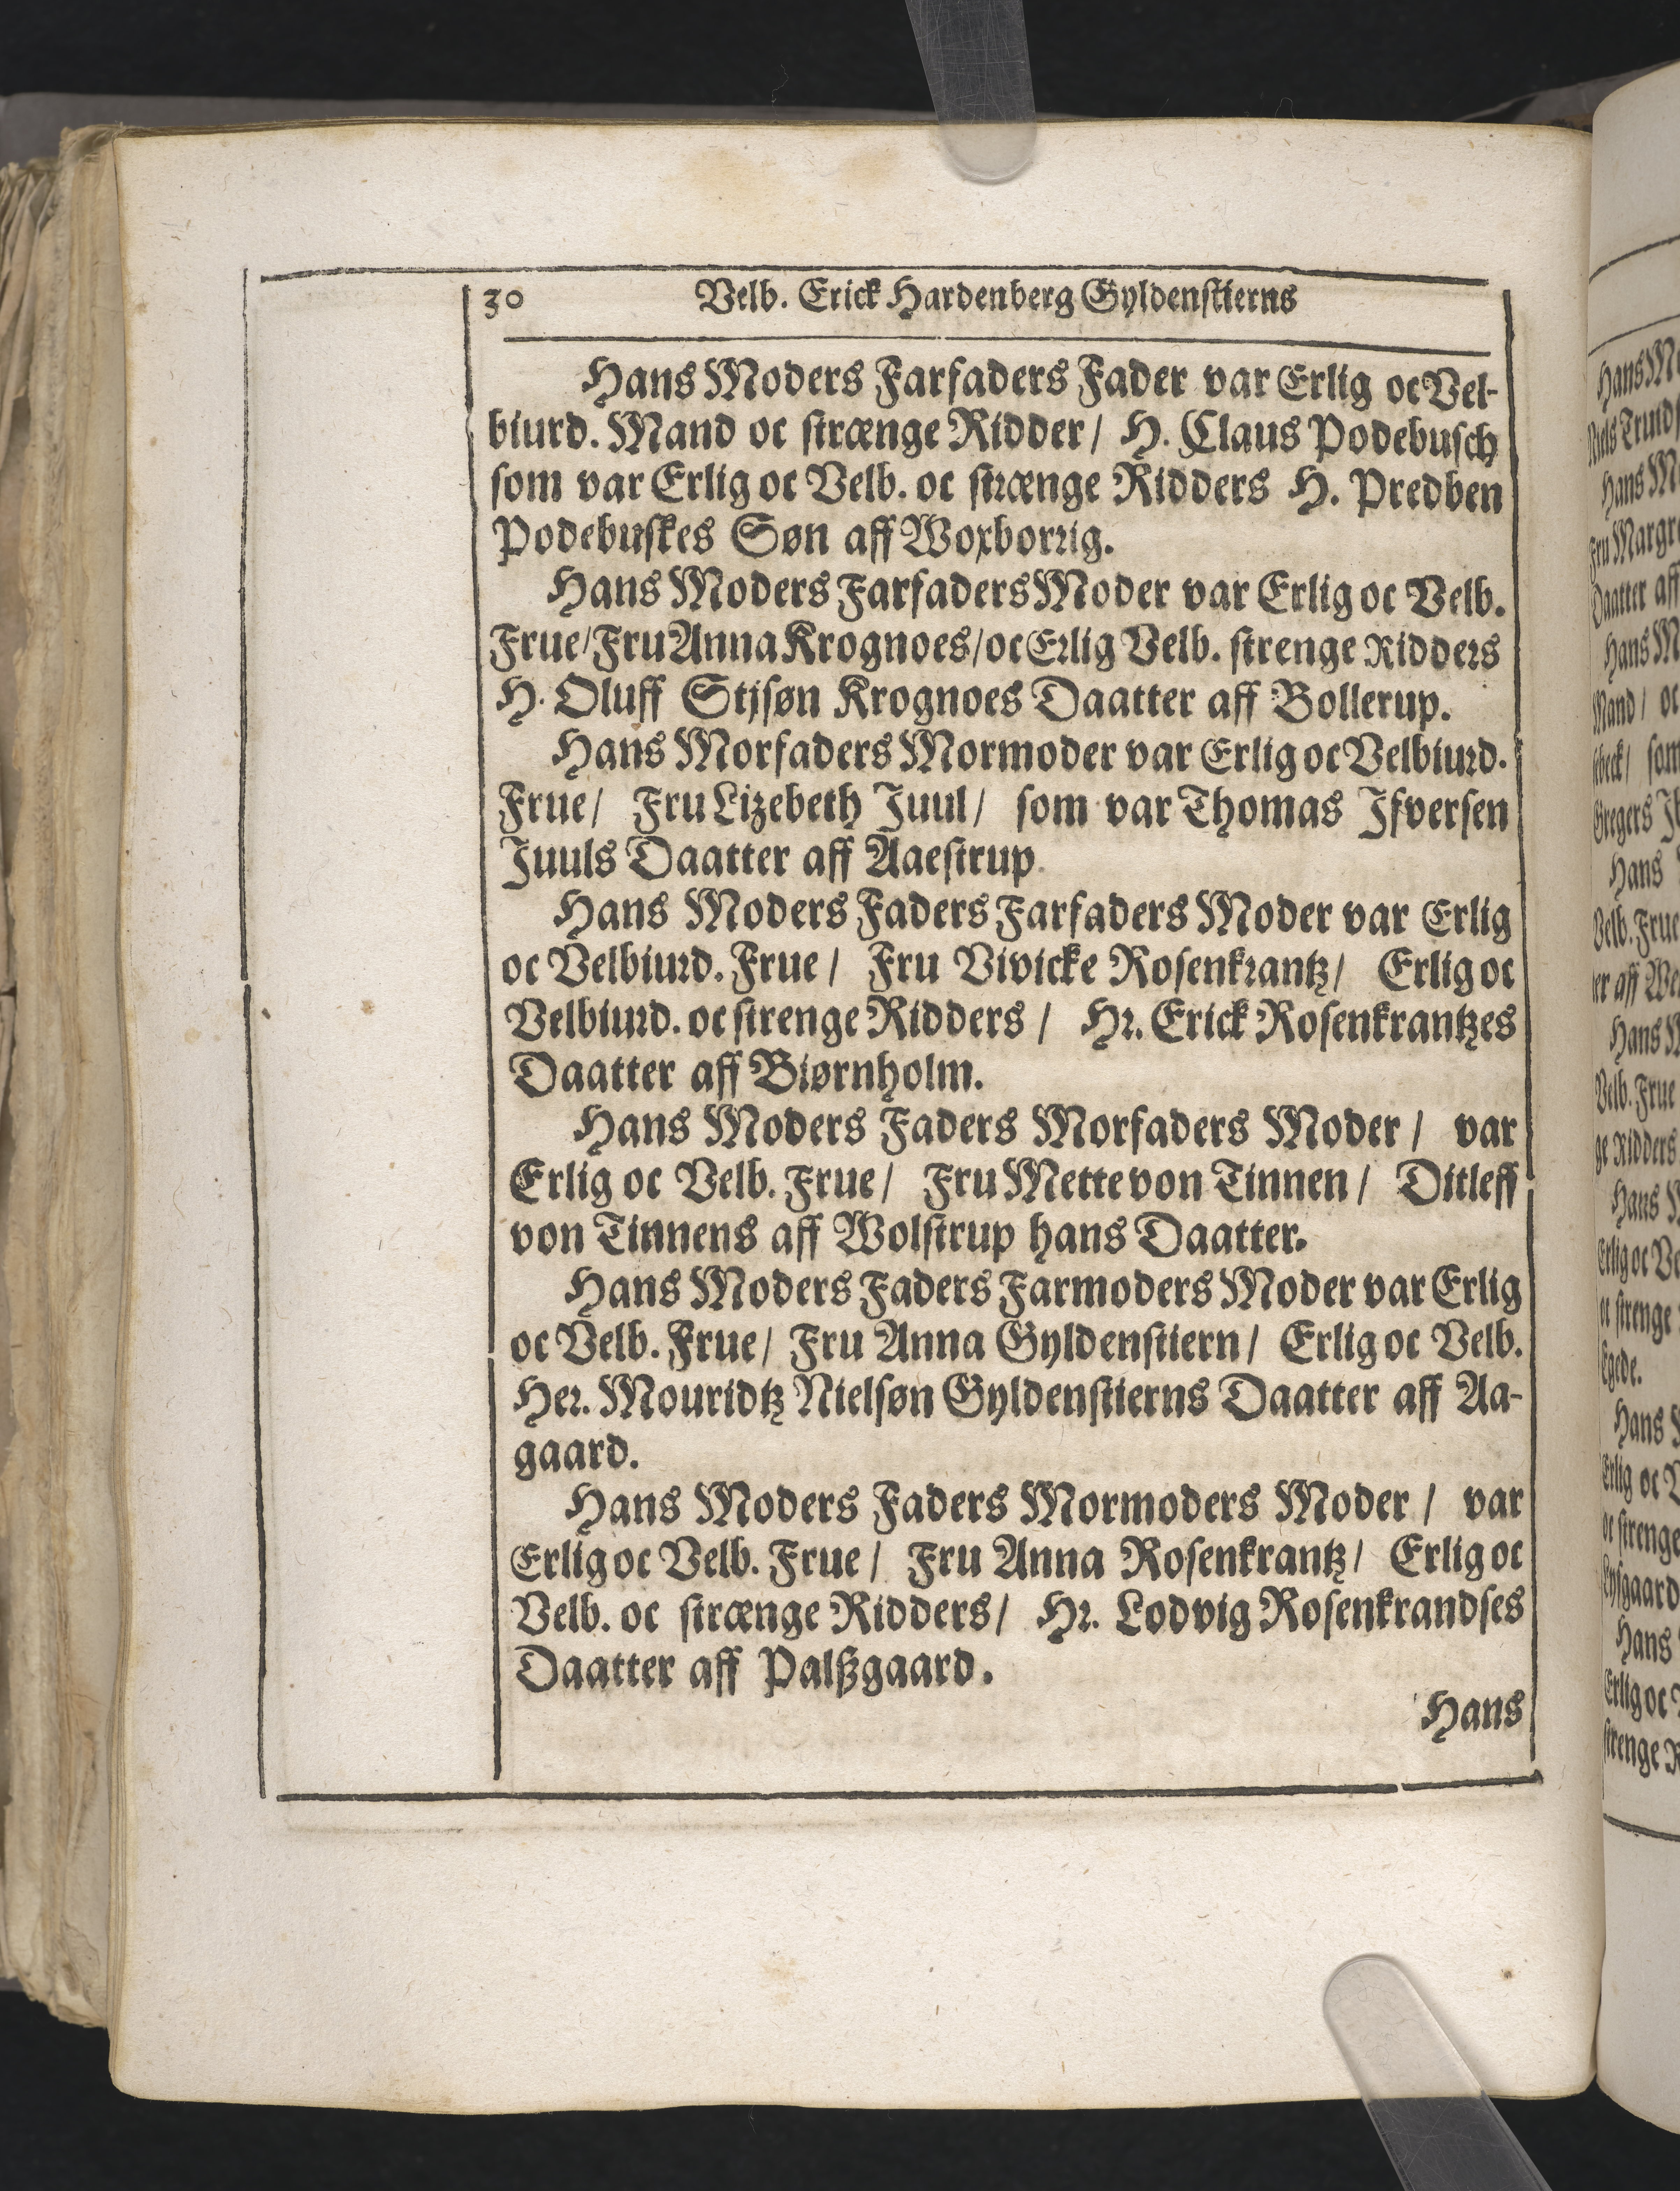 30 Velb. Erick Hardenberg Gyldenstierns
Hans Moders Farfaders Fader var Erlig oc Vel-
biurd. Mand oc strænge Ridder/ H. Claus Podebusch
som var Erlig oc Velb. oc strænge Ridders H. Predben
Podebuskes Søn aff Woxborrig.
Hans Moders Farfaders Moder var Erlig oc Velb.
Frue/ Fru Anna Krognoes/ oc Erlig Velb. strenge Ridders
H. Oluff Stjsøn Krognoes Daatter aff Bollerup.
Hans Morfaders Mormoder var Erlig oc Velbiurd.
Frue/ Fru Lizebeth Juul/ som var Thomas Ifversen
Juuls Daatter aff Aaestrup.
Hans Moders Faders Farfaders Moder var Erlig
oc Velbiurd. Frue/ Fru Vivicke Rosenkrantz/ Erlig oc
Velbiurd. oc strenge Ridders/ Hr. Erick Rosenkrantzes
Daatter aff Biørnholm.
Hans Moders Faders Morfaders Moder/ var
Erlig oc Velb. Frue/ Fru Mette von Tinnen/ Ditleff
von Tinnens aff Wolstrup hans Daatter.
Hans Moders Faders Farmoders Moder var Erlig
oc Velb. Frue/ Fru Anna Gyldenstiern/ Erlig oc Velb.
Her. Mouridtz Nielsøn Gyldenstierns Daatter aff Aa-
gaard.
Hans Moders Faders Mormoders Moder/ var
Erlig oc Velb. Frue/ Fru Anna Rosenkrantz/ Erlig oc
Velb. oc strænge Ridders/ Hr. Lodvig Rosenkrandses
Daatter aff Palßgaard.
Hans